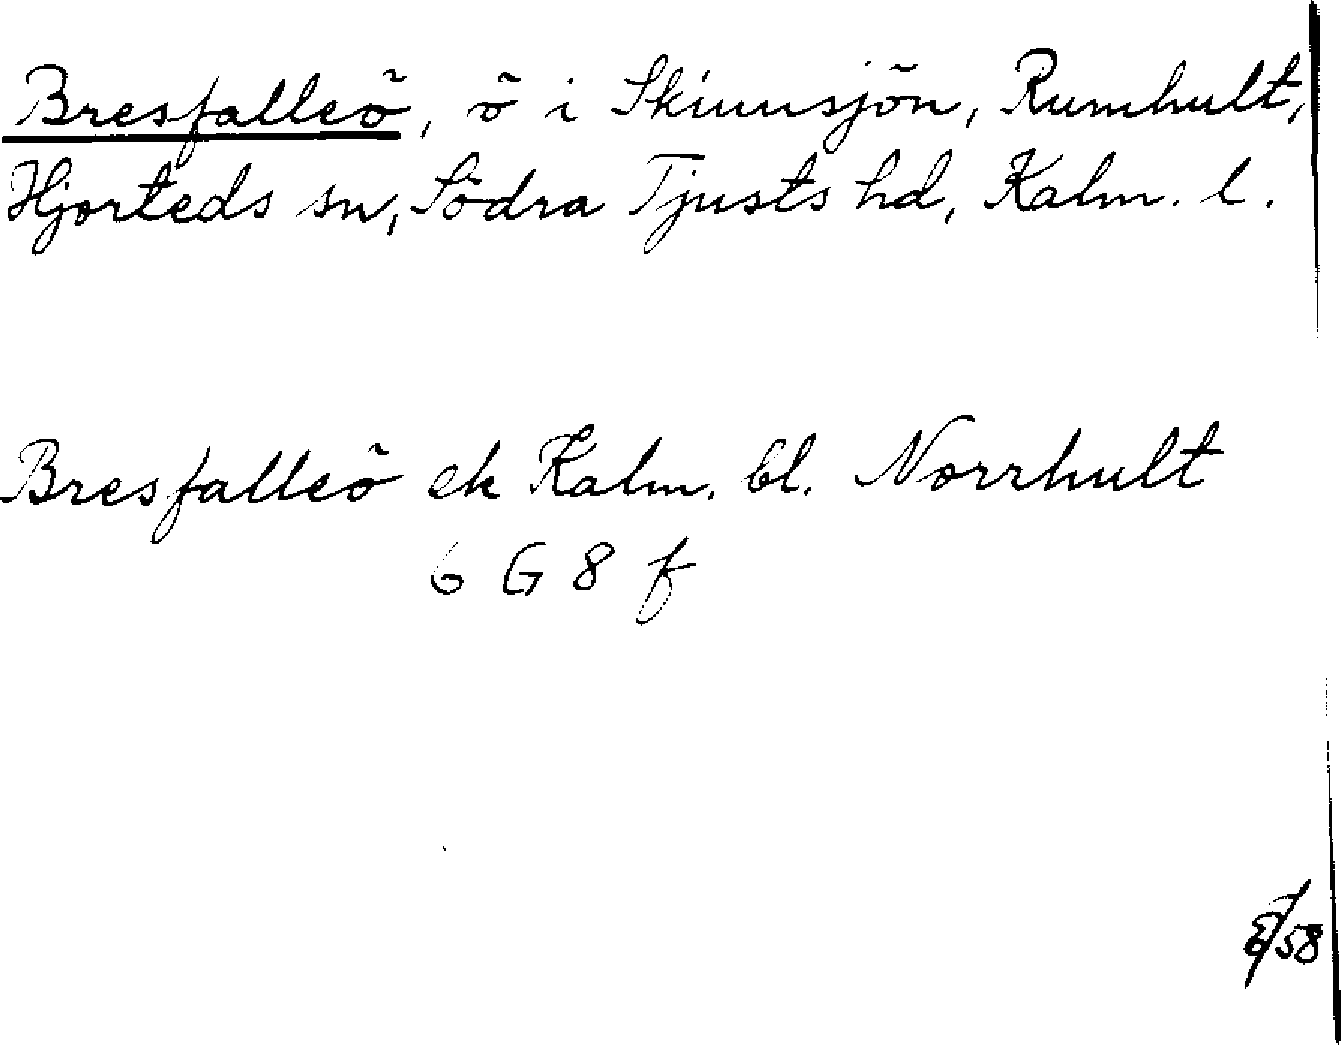 Bresfalleö, ö i Skiuusjön, Rumhult,
Hjorteds sn, Södra Tjusts hd, Kalm. l.
Bresfalleö ek Kalm. bl. Norrhult
6 G 8 f
/58